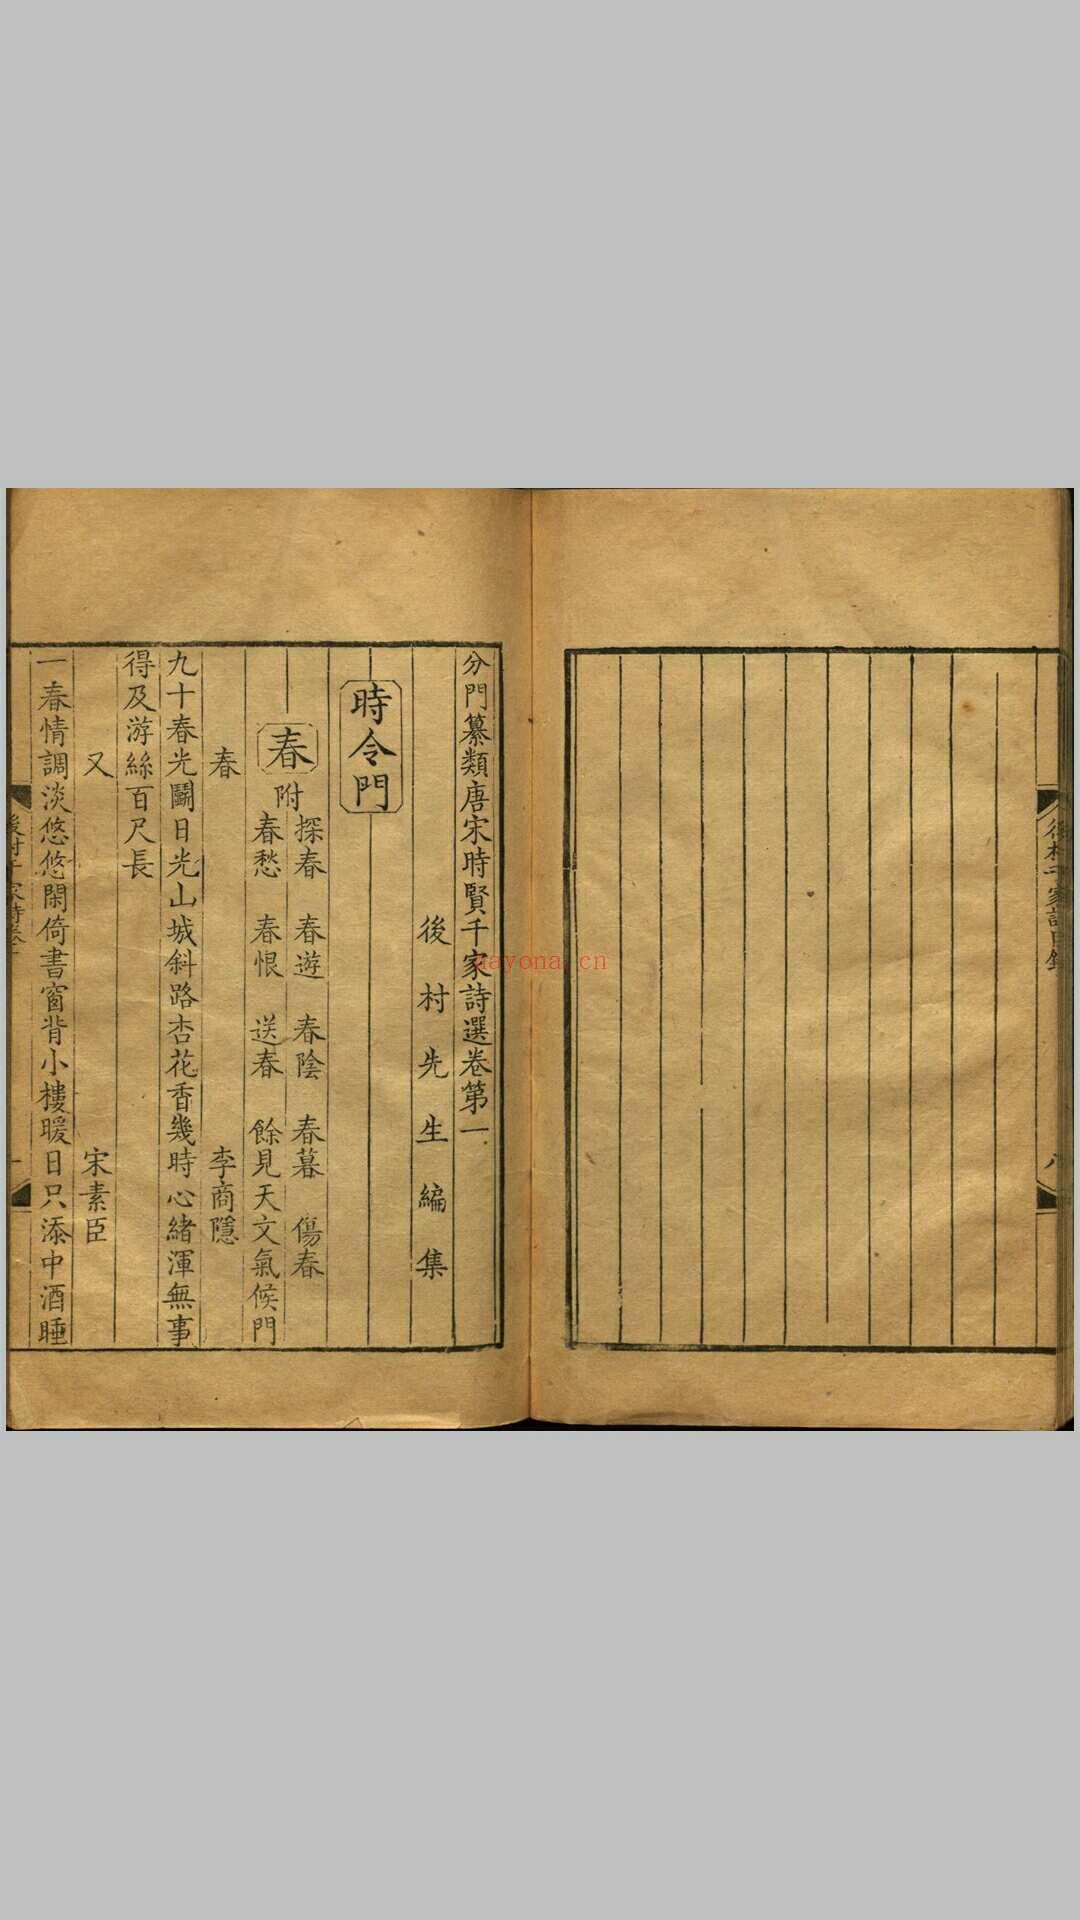 後村千家詩目錄
八
分門纂類唐宋時賢千家詩選卷第一
後村先生編集
時令門
春
附
探春 春遊 春陰 春暮 傷春
春愁 春恨 送春 餘見天文氣候門
春 李商隱
九十春光鬭日光山城斜路杏花香幾時心緒渾無事
得及游絲百尺長
又 宋素臣
一春情調淡悠悠閑倚書窗背小樓暖日只添中酒睡
後村千家詩卷一
一
nayona.cn